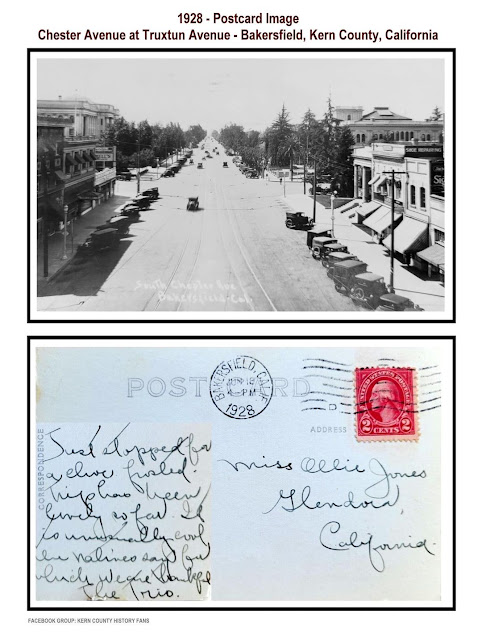 1928 - Postcard Image
Chester Avenue at Truxtun Avenue - Bakersfield, Kern County, California
SHOE REPAIRING
South Chester Ave
Bakersfield-Cal.
POSTCARD
BAKERSFIELD, CALIF.
4-PM
1928
UNITED STATES POSTAGE
2 CENTS 2
ADDRESS
CORRESPONDENCE
Just stopped for
a olive fosted.
Trip has been
lovely so far. It
is unusually cool
the natives say for
which we are thankful
The Trio.
Miss Ollie Jones
Glendora,
California.
FACEBOOK GROUP: KERN COUNTY HISTORY FANS